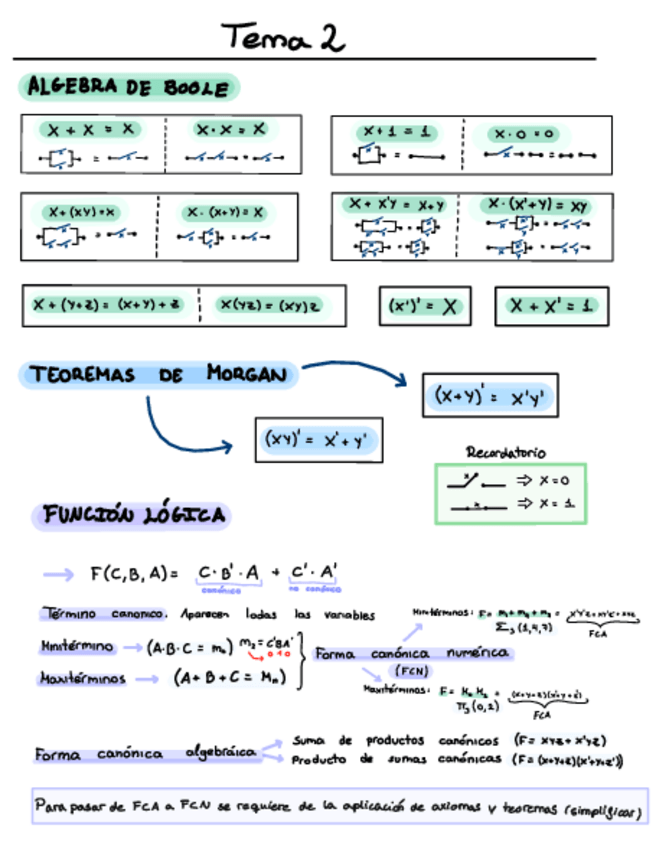 Tema 2
ALGEBRA DE BOOLE
X + X = X
X · X = X
X + 1 = 1
X · 0 = 0
X + (XY) = X
X · (X+Y) = X
X + X'Y = X+Y
X · (X'+Y) = XY
X + (Y+Z) = (X+Y) + Z
X(YZ) = (XY)Z
(X')' = X
X + X' = 1
TEOREMAS DE MORGAN
(X+Y)' = X'Y'
(XY)' = X' + Y'
Recordatorio
x ⇒ X = 0
x ⇒ X = 1
FUNCIÓN LÓGICA
→ F(C, B, A) = C · B' · A + C' · A'
canónico no canónico
Término canonico. Aparecen todas las variables
Minitérmino → (A·B·C = mₙ) m₂ = C'BA'
0 1 0
Maxitérminos → (A + B + C = Mₙ)
Forma canónica numérica
(FCN)
Minitérminos: F = m₁ + m₄ + m₇ =
Σ₃ (1,4,7)
FCA
Maxitérminos: F = M₀ M₂ =
π₃ (0,2)
FCA
Forma canónica algebráica
Suma de productos canónicos (F = XYZ + X'YZ)
Producto de sumas canónicas (F = (X+Y+Z)(X'+Y+Z'))
Para pasar de FCA a FCN se requiere de la aplicación de axiomas y teoremas (simplificar)